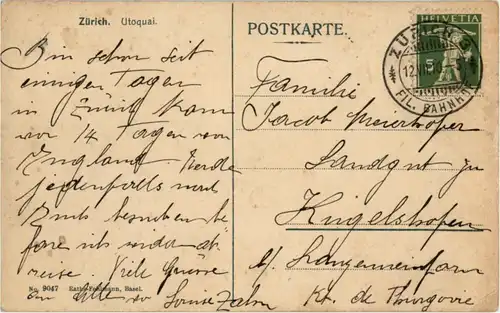 Zürich. Utoquai.
POSTKARTE.
HELVETIA
5
ZÜRICH
FIL. BAHNHOF
Bin schon seit
einigen Tagen
in Zürich kam
vor 14 Tagen von
England. Werde
jedenfalls noch
besuchen be-
fore ich wieder ab-
reise. Viele Grüsse
an alle von Louise Zahn
Familie
Jacob Meierhofer
Landgut zu
Hugelshofen
b/ Langenneinforn
Kt. de Thurgovie
No. 9047 Rathe-Fehlmann, Basel.